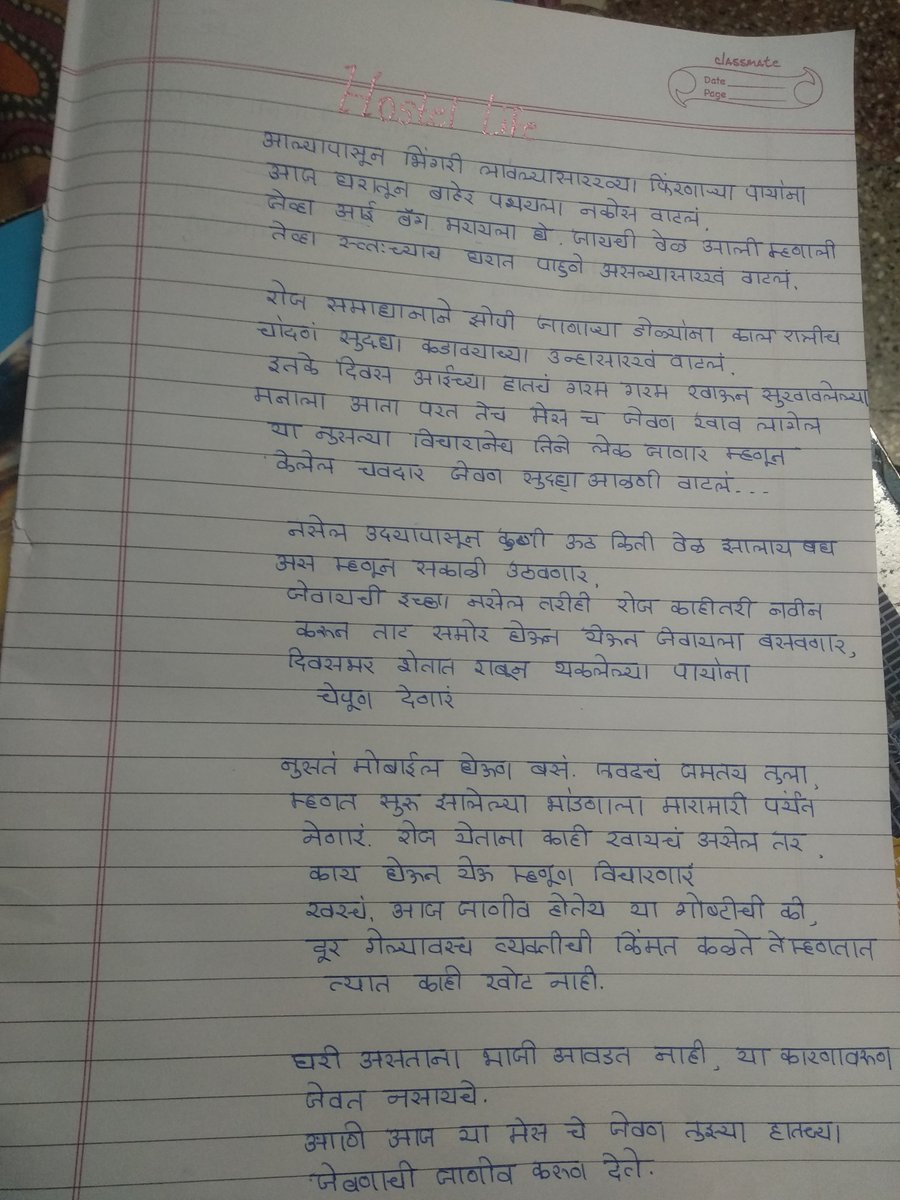 classmate
Date
Page
Hostel Life
आल्यापासून भिंगरी लावल्यासारख्या फिरणाऱ्या पायांना
आज घरातून बाहेर पडायला नकोस वाटलं.
जेव्हा आई बॅग भरायला घे. जायची वेळ आली म्हणाली
तेव्हा स्वतःच्याच घरात पाहुने असल्यासारखं वाटलं.
रोज समाधानाने झोपी जाणाऱ्या डोळ्यांना काल रात्रीच
चांदणं सुदधा कडाक्याच्या उन्हासारखं वाटलं.
इतके दिवस आईच्या हातचं गरम गरम खाऊन सुखावलेल्या
मनाला आता परत तेच मेस च जेवण खाव लागेल
या नुसत्या विचारानेच तिने लेक जाणार म्हणून
केलेल चवदार जेवण सुदधा आळणी वाटलं...
नसेल उदयापासून कुणी ऊठ किती वेळ झालाय बघ
अस म्हणून सकाळी उठवणार,
जेवायची इच्छा नसेल तरीही रोज काहीतरी नवीन
करून ताट समोर घेऊन येऊन जेवायला बसवणार,
दिवसभर शेतात राबून थकलेल्या पायांना
चेपूण देणारं
नुसतं मोबाईल घेऊण बसं. एवढचं जमतय तुला,
म्हणत सुरू झालेल्या भांडणाला मारामारी पर्यंत
नेणारं. रोज येताना काही खायचं असेल तर,
काय घेऊन येऊ म्हणूण विचारणारं
खरचं, आज जाणीव होतेय या गोष्टीची की,
दूर गेल्यावरच व्यक्तीची किंमत कळते ते म्हणतात
त्यात काही खोट नाही.
घरी असताना भाजी आवडत नाही, या कारणावरूण
जेवत नसायचे.
आणि आज या मेस चे जेवण तुझ्या हातच्या
जेवणाची जाणीव करूण देते.